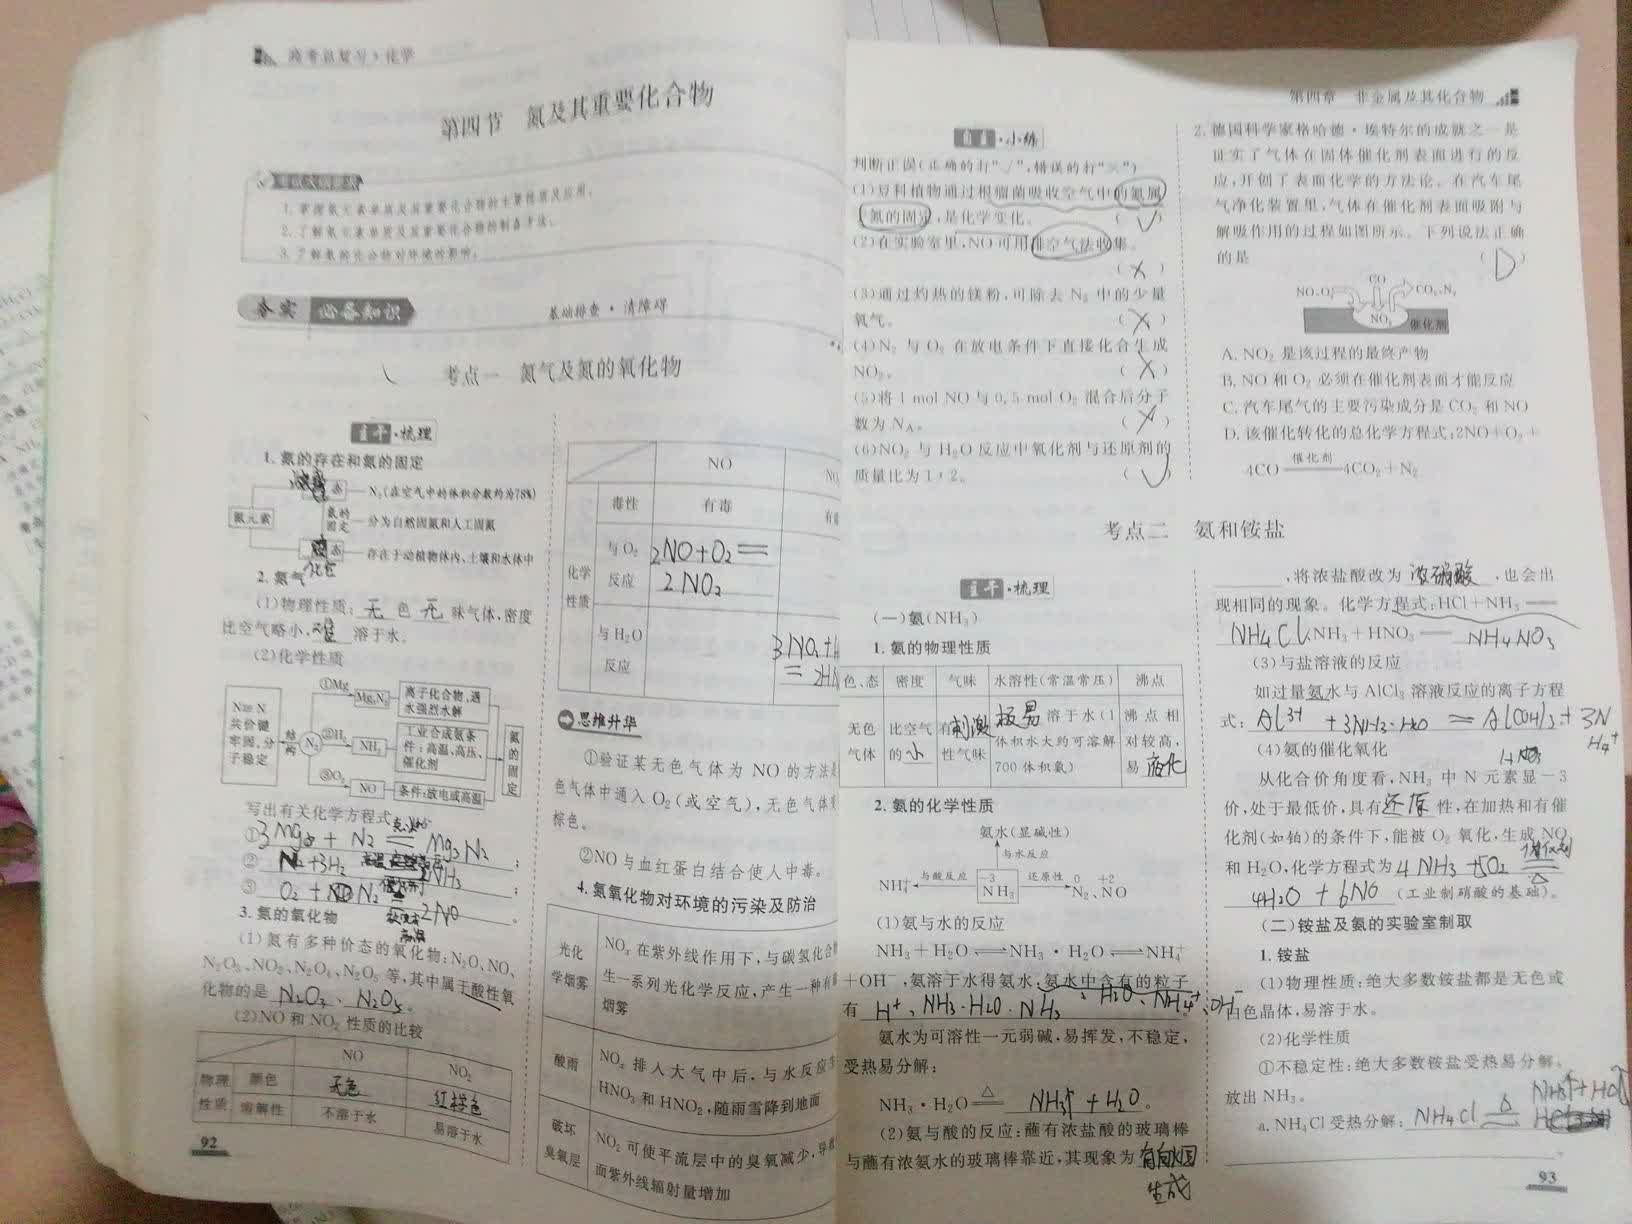 高考总复习·化学
第四节 氮及其重要化合物
考试大纲要求
1.掌握氮元素单质及其重要化合物的主要性质及应用。
2.了解氮元素单质及其重要化合物的制备方法。
3.了解氮的化合物对环境的影响。
夯实 必备知识 基础排查·清障碍
考点一 氮气及氮的氧化物
主干·梳理
1.氮的存在和氮的固定
氮元素
态 N₂(在空气中的体积分数约为78%)
氮的固定 分为自然固氮和人工固氮
态 存在于动植物体内、土壤和水体中
化合
2.氮气
(1)物理性质: 无 色 无 味气体,密度
比空气略小, 难 溶于水。
(2)化学性质
N≡N 共价键牢固,分子稳定
结构
N₂
①Mg Mg₃N₂ 离子化合物,遇水强烈水解
②H₂ NH₃ 工业合成氨条件:高温、高压、催化剂
③O₂ NO 条件:放电或高温
氮的固定
写出有关化学方程式
①3Mg + N₂ = Mg₃N₂ ;
② N₂+3H₂ NH₃ ;
③ O₂ + N₂ = 2NO 。
放电 高温
3.氮的氧化物
(1)氮有多种价态的氧化物:N₂O、NO、
N₂O₃、NO₂、N₂O₄、N₂O₅等,其中属于酸性氧
化物的是 N₂O₃、N₂O₅ 。
(2)NO和NO₂性质的比较
NO NO₂
物理性质 颜色 无色 红棕色
溶解性 不溶于水 易溶于水
92
NO
毒性 有毒
化学性质
与O₂反应 2NO+O₂= 2NO₂
与H₂O反应 3NO₂+
思维升华
①验证某无色气体为NO的方法是
色气体中通入O₂(或空气),无色气体变
棕色。
②NO与血红蛋白结合使人中毒。
4.氮氧化物对环境的污染及防治
光化学烟雾 NOₓ在紫外线作用下,与碳氢化合
生一系列光化学反应,产生一种有
烟雾
酸雨 NOₓ排入大气中后,与水反应生
HNO₃和HNO₂,随雨雪降到地面
破坏臭氧层 NO₂可使平流层中的臭氧减少,导
面紫外线辐射量增加
第四章 非金属及其化合物
自主·小练
判断正误(正确的打“√”,错误的打“×”)
(1)豆科植物通过根瘤菌吸收空气中的氮属
氮的固定,是化学变化。 (√)
(2)在实验室里,NO可用排空气法收集。
(×)
(3)通过灼热的镁粉,可除去N₂中的少量
氧气。 (×)
(4)N₂与O₂在放电条件下直接化合生成
NO₂。 (×)
(5)将1 mol NO与0.5 mol O₂混合后分子
数为N_A。 (×)
(6)NO₂与H₂O反应中氧化剂与还原剂的
质量比为1∶2。 (√)
2.德国科学家格哈德·埃特尔的成就之一是
证实了气体在固体催化剂表面进行的反
应,开创了表面化学的方法论。在汽车尾
气净化装置里,气体在催化剂表面吸附与
解吸作用的过程如图所示。下列说法正确
的是 (D)
NO、O₂ CO CO₂、N₂
NO₂ 催化剂
A.NO₂是该过程的最终产物
B.NO和O₂必须在催化剂表面才能反应
C.汽车尾气的主要污染成分是CO₂和NO
D.该催化转化的总化学方程式:2NO+O₂+
4CO 催化剂 4CO₂+N₂
考点二 氨和铵盐
主干·梳理
(一)氨(NH₃)
1.氨的物理性质
色、态 密度 气味 水溶性(常温常压) 沸点
无色气体 比空气的 小 有刺激性气味 极易 溶于水(1体积水大约可溶解700体积氨) 沸点相对较高,易 液化
2.氨的化学性质
氨水(显碱性)
与水反应
NH₄⁺ 与酸反应 NH₃ 还原性 N₂、NO
(1)氨与水的反应
NH₃+H₂O⇌NH₃·H₂O⇌NH₄⁺
+OH⁻,氨溶于水得氨水,氨水中含有的粒子
有 H⁺、NH₃·H₂O、NH₃、H₂O、NH₄⁺、OH⁻
氨水为可溶性一元弱碱,易挥发,不稳定,
受热易分解:
NH₃·H₂O △ NH₃↑+H₂O 。
(2)氨与酸的反应:蘸有浓盐酸的玻璃棒
与蘸有浓氨水的玻璃棒靠近,其现象为 有白烟
生成
,将浓盐酸改为 浓硝酸 ,也会出
现相同的现象。化学方程式:HCl+NH₃══
NH₄Cl、NH₃+HNO₃══ NH₄NO₃
(3)与盐溶液的反应
如过量氨水与AlCl₃溶液反应的离子方程
式: Al³⁺ +3NH₃·H₂O = Al(OH)₃+ 3NH₄⁺
(4)氨的催化氧化
从化合价角度看,NH₃中N元素显-3
价,处于最低价,具有还原性,在加热和有催
化剂(如铂)的条件下,能被O₂氧化,生成NO
和H₂O,化学方程式为 4NH₃+5O₂ 催化剂 △
4H₂O + 6NO (工业制硝酸的基础)。
(二)铵盐及氨的实验室制取
1.铵盐
(1)物理性质:绝大多数铵盐都是无色或
白色晶体,易溶于水。
(2)化学性质
①不稳定性:绝大多数铵盐受热易分解,
放出NH₃。
a.NH₄Cl受热分解: NH₄Cl △ NH₃↑+HCl↑
93